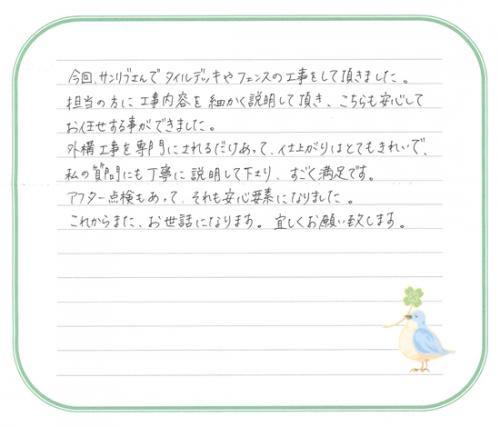 今回、サンリブさんでタイルデッキやフェンスの工事をして頂きました。
担当の方に工事内容を細かく説明して頂き、こちらも安心して
お任せする事ができました。
外構工事を専門にされるだけあって、仕上がりはとてもきれいで、
私の質問にも丁寧に説明して下さり、すごく満足です。
アフター点検もあって、それも安心要素になりました。
これからまた、お世話になります。宜しくお願い致します。